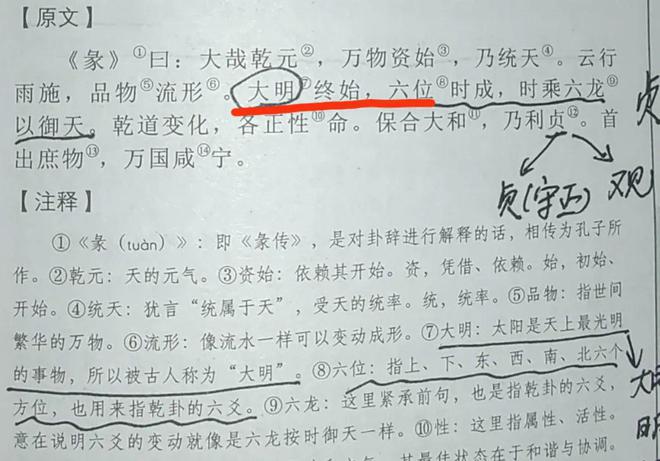 【原文】
《彖》①曰：大哉乾元②，万物资始③，乃统天④。云行
雨施，品物⑤流形⑥。大明⑦终始，六位⑧时成，时乘六龙⑨
以御天。乾道变化，各正性⑩命。保合大和⑪，乃利贞⑫。首
出庶物⑬，万国咸⑭宁。
贞
贞(守正) 观
【注释】
①《彖（tuàn）》：即《彖传》，是对卦辞进行解释的话，相传为孔子所
作。②乾元：天的元气。③资始：依赖其开始。资，凭借、依赖。始，初始、
开始。④统天：犹言“统属于天”，受天的统率。统，统率。⑤品物：指世间
繁华的万物。⑥流形：像流水一样可以变动成形。⑦大明：太阳是天上最光明
的事物，所以被古人称为“大明”。⑧六位：指上、下、东、西、南、北六个
方位，也用来指乾卦的六爻。⑨六龙：这里紧承前句，也是指乾卦的六爻，
意在说明六爻的变动就像是六龙按时御天一样。⑩性：这里指属性、活性。
其最佳状态在于和谐与协调。